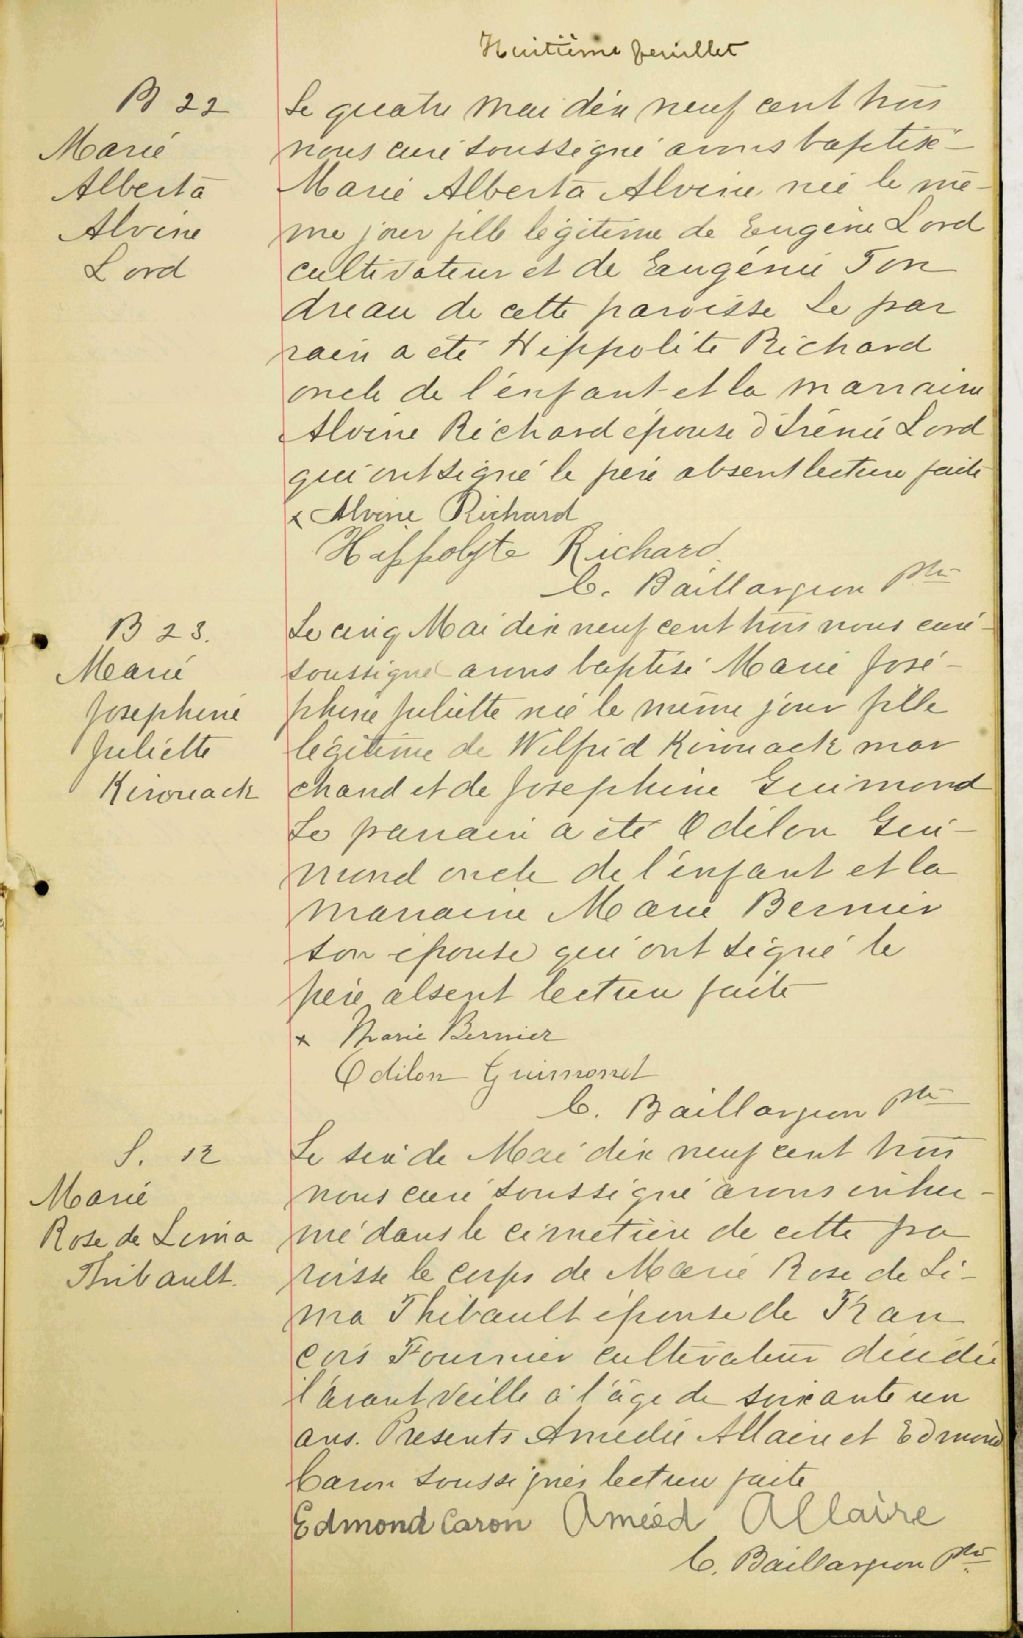 Huitième feuillet
B 22
Marie
Alberta
Alvine
Lord
Le quatre mai dix neuf cent trois
nous curé soussigné avons baptisé
Marie Alberta Alvine née le mê-
me jour fille légitime de Eugène Lord
cultivateur et de Eugénie Ton
dreau de cette paroisse Le par
rain a été Hippolite Richard
oncle de l'enfant et la marraine
Alvine Richard épouse d'Irénée Lord
qui ont signé le père absent lecture faite
x Alvine Richard
Hippolyte Richard
C. Baillargeon Ptre
B 23.
Marie
Josephine
Juliette
Kirouack
Le cinq Mai dix neuf cent trois nous curé
soussigné avons baptisé Marie José-
phine Juliette née le même jour fille
légitime de Wilfrid Kirouack mar
chand et de Josephine Guimond
Le parrain a été Odilon Gui-
mond oncle de l'enfant et la
marraine Marie Bernier
son épouse qui ont signé le
père absent lecture faite
x Marie Bernier
Odilon Guimond
C. Baillargeon Ptre
S. 12
Marie
Rose de Lima
Thibault
Le six de Mai dix neuf cent trois
nous curé soussigné avons inhu-
mé dans le cimetière de cette pa
roisse le corps de Marie Rose de Li-
ma Thibault épouse de Fran
çois Fournier cultivateur décédée
l'avant veille à l'âge de soixante un
ans. Présents Amedée Allaire et Edmond
Caron soussignés lecture faite
Edmond Caron Améd Allaire
C. Baillargeon Ptre